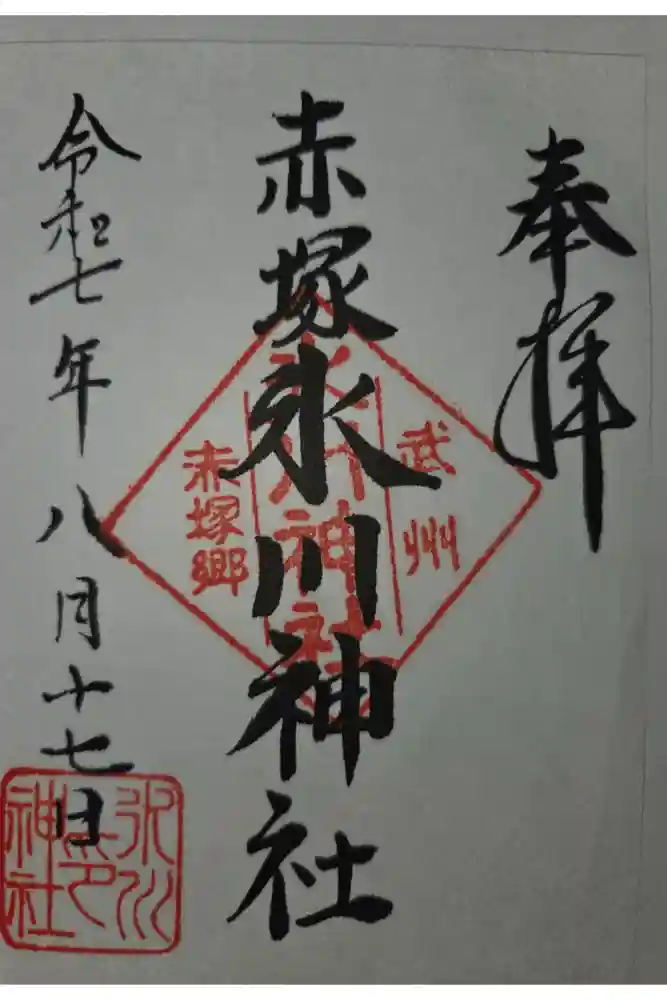 奉拝
武州
氷川神社
赤塚郷
赤塚氷川神社
令和七年八月十七日
氷川
神社